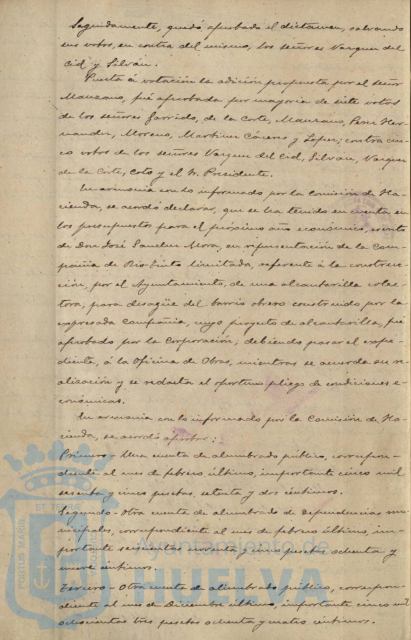 Seguidamente, quedó aprobado el dictamen, salvando
sus votos, en contra del mismo, los señores Vazquez del
Cid y Silván.
Puesta á votación la adición propuesta por el señor
Manzano, fué aprobada por mayoría de siete votos
de los señores Garrido, de la Corte, Manzano, Perez Her-
nandez, Moreno, Martinez Cáceres y Lopez; contra cin-
co votos de los señores Vazquez del Cid, Silván, Vazquez
de la Corte, Coto y el Sr. Presidente.
En armonía con lo informado por la Comisión de Ha-
cienda, se acordó declarar, que se ha tenido en cuenta en
los presupuestos para el próximo año económico, escrito
de Don José Sanchez Mora, en representación de la Com-
pañía de Rio-tinto limitada, referente á la construc-
ción, por el Ayuntamiento, de una alcantarilla colec-
tora, para desagüe del barrio obrero construido por la
expresada Compañía, cuyo proyecto de alcantarilla, fué
aprobado por la Corporación, debiendo pasar el expe-
diente, á la Oficina de Obras, mientras se acuerda su re-
alización y se redacta el oportuno pliego de condiciones e-
conómicas.
En armonía con lo informado por la Comisión de Ha-
cienda, se acordó aprobar:
Primero - Una cuenta de alumbrado público, correspon-
diente al mes de febrero último, importante cinco mil
sesenta y cinco pesetas, setenta y dos céntimos.
Segundo - Otra cuenta de alumbrado de dependencias mu-
nicipales, correspondiente al mes de febrero último, im-
portante seiscientas noventa y cinco pesetas ochenta y
nueve céntimos.
Tercero - Otra cuenta de alumbrado público, correspon-
diente al mes de Diciembre último, importante cinco mil
ochocientas tres pesetas ochenta y cuatro céntimos.
PORTUS MARIS
ET TE
Ayuntamiento de
HUELVA